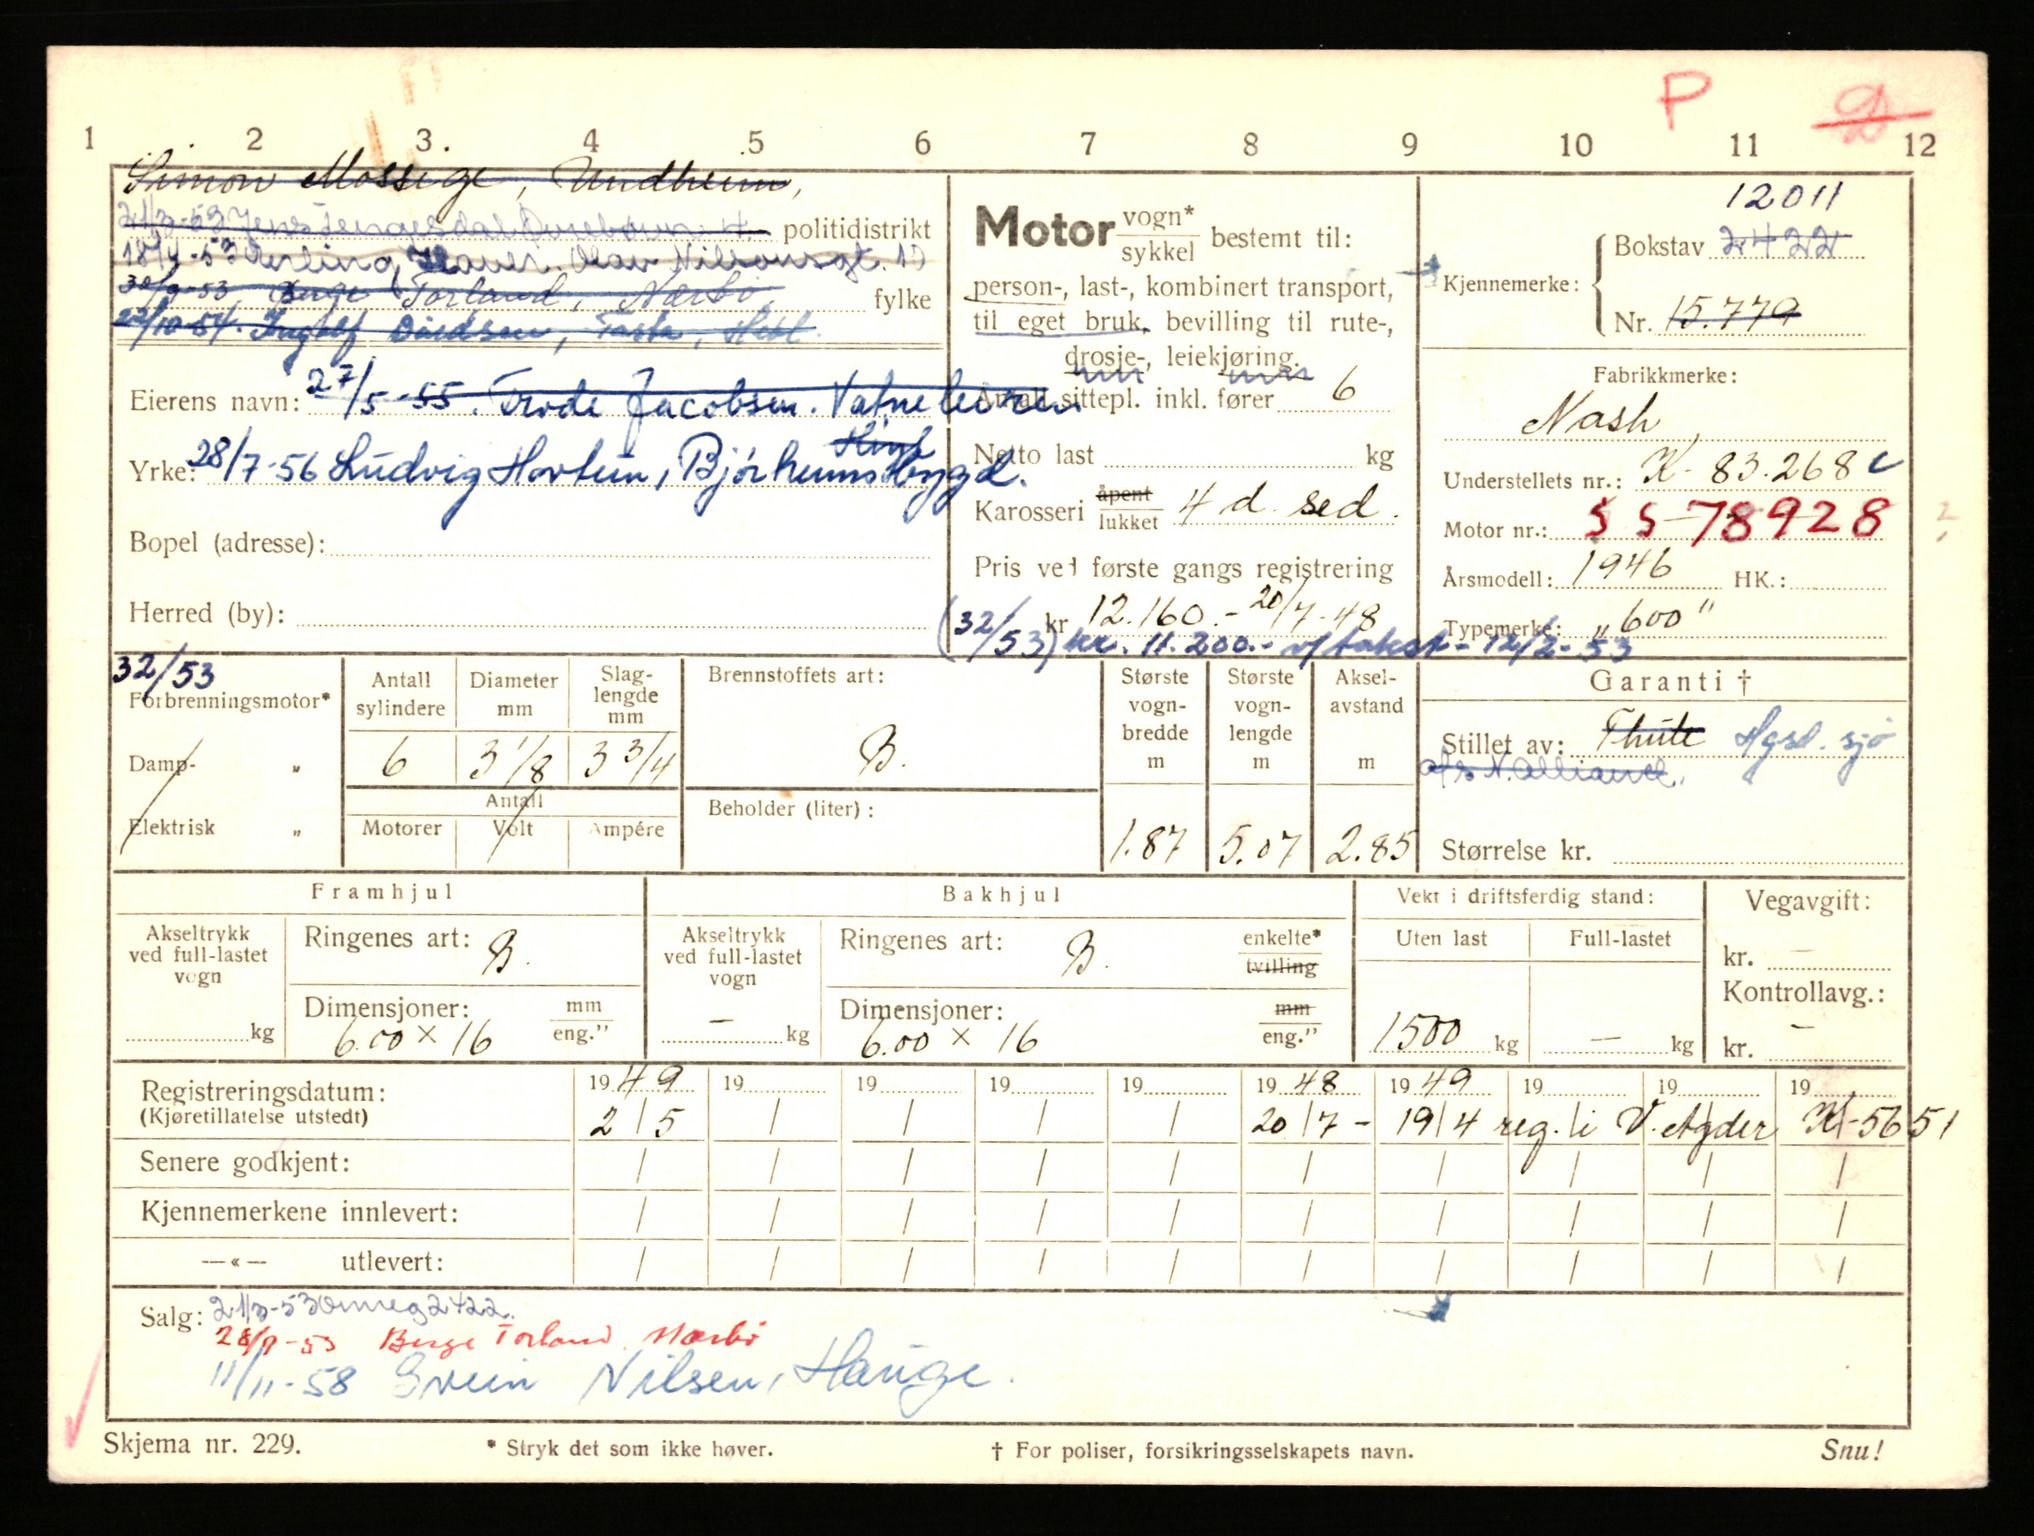 P
1 2 3. 4 5 6 7 8 9 10 11 12
Simon Mossige, Undheim,
21/3-53 Jens politidistrikt
18/4-53 Olav Nilsonsgt. 10
30/9-53 Børge Torland, Nærbø, fylke
22/10-54. Ingolf Davidsen, Tasta, Hetl.
Eierens navn: 27/5-55. Frode Jacobsen. Vatneleiren
Yrke: 28/7-56 Ludvig Hovtun, Bjørheimsbygd.
Bopel (adresse):
Herred (by):
Motor vogn* / sykkel bestemt til:
person-, last-, kombinert transport,
til eget bruk, bevilling til rute-,
drosje-, leiekjøring.
Antall sittepl. inkl. fører 6
Netto last kg
Karosseri åpent / lukket 4 d. sed.
Pris ved første gangs registrering
kr 12.160.- 20/7-48
(32/53) kr. 11.200.- v/takst - 12/2-53
12011
Kjennemerke: Bokstav 2422
Nr. 15.779
Fabrikkmerke:
Nash
Understellets nr.: K-83.268
Motor nr.: S S-78928
Årsmodell: 1946 HK.:
Typemerke: „600"
32/53
Forbrenningsmotor*
Damp- „
Elektrisk „
Antall sylindere 6
Diameter mm 3 1/8
Slaglengde mm 3 3/4
Antall
Motorer Volt Ampére
Brennstoffets art:
B.
Beholder (liter):
Største vognbredde m 1.87
Største vognlengde m 5.07
Akselavstand m 2.85
Garanti †
Stillet av: Hgsd. sjø
N. Alliance.
Størrelse kr.
Framhjul
Akseltrykk ved full-lastet vogn kg
Ringenes art: B.
Dimensjoner: mm / eng."
6.00 x 16
Bakhjul
Akseltrykk ved full-lastet vogn — kg
Ringenes art: B. enkelte* / tvilling
Dimensjoner: mm / eng."
6.00 x 16
Vekt i driftsferdig stand:
Uten last Full-lastet
1500 kg — kg
Vegavgift:
kr. —
Kontrollavg.:
kr. —
Registreringsdatum: 1949 19 19 19 19 1948 1949 19 19 19
(Kjøretillatelse utstedt) 2/5 / / / / 20/7 - 19/4 reg. i V. Agder K-5651
Senere godkjent:
Kjennemerkene innlevert:
—«— utlevert:
Salg: 21/3-53 Omreg 2422.
28/9-53 Børge Torland Nærbø
11/11-58 Svein Nilsen, Hauge.
Skjema nr. 229. * Stryk det som ikke høver. † For poliser, forsikringsselskapets navn. Snu!